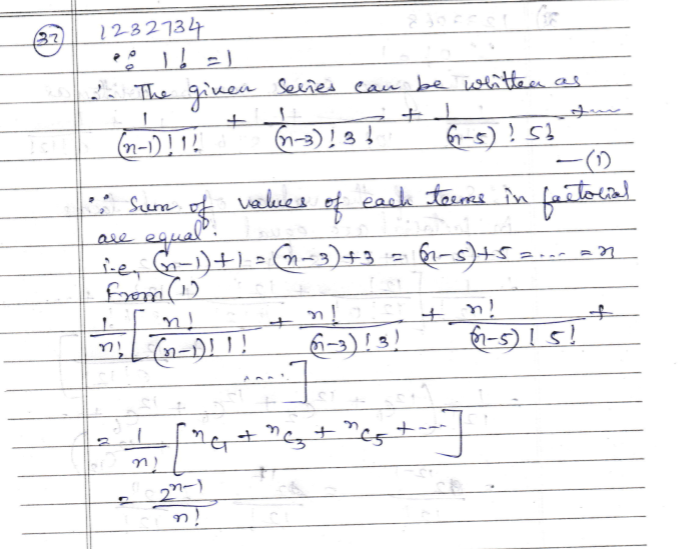 37 1232734
∵ 1! = 1
∴ The given series can be written as
1/(n-1)!1! + 1/(n-3)!3! + 1/(n-5)!5! + ...
—(1)
∵ Sum of values of each terms in factorial
are equal.
i.e, (n-1)+1 = (n-3)+3 = (n-5)+5 = ... = n
From (1)
1/n! [ n!/(n-1)!1! + n!/(n-3)!3! + n!/(n-5)!5! +
....]
= 1/n! [ⁿC₁ + ⁿC₃ + ⁿC₅ + ---]
= 2ⁿ⁻¹/n!